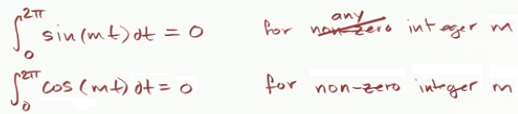 ∫₀^{2π} sin(mt) dt = 0 for any ~~non-zero~~ integer m
∫₀^{2π} cos(mt) dt = 0 for non-zero integer m